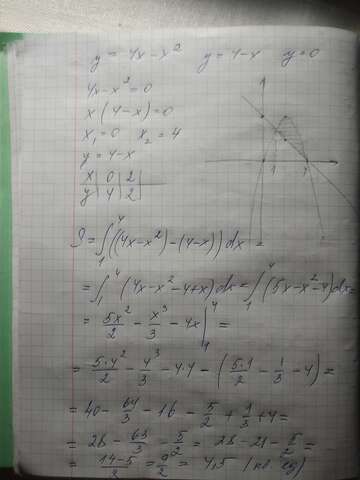 y = 4x - x²   y = 4 - x   y = 0
4x - x² = 0
x (4 - x) = 0
x₁ = 0   x₂ = 4
y = 4 - x
x | 0 | 2 |
y | 4 | 2 |
1
4
S = ∫₁⁴ ((4x - x²) - (4 - x)) dx =
= ∫₁⁴ (4x - x² - 4 + x) dx = ∫₁⁴ (5x - x² - 4) dx =
= 5x²/2 - x³/3 - 4x |₁⁴ =
= 5·4²/2 - 4³/3 - 4·4 - (5·1/2 - 1/3 - 4) =
= 40 - 64/3 - 16 - 5/2 + 1/3 + 4 =
= 28 - 63/3 - 5/2 = 28 - 21 - 5/2 =
= 14-5/2 = 9/2 = 4,5 (кв. ед)